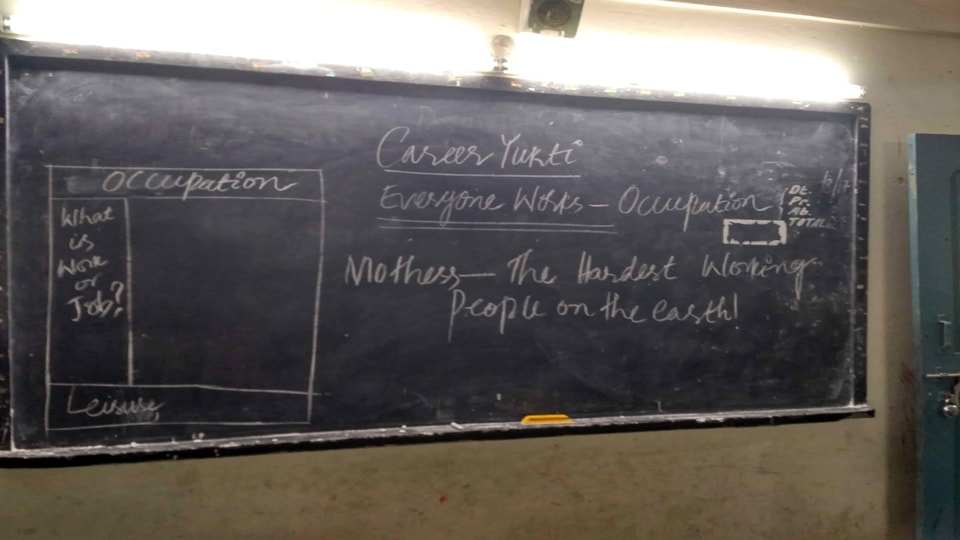 Career Yukti
Everyone Works - Occupation
Dt.
Pr.
Ab.
TOTAL
Mothers - The Hardest Working
People on the earth!
Occupation
What
is
Work
or
Job?
Leisure